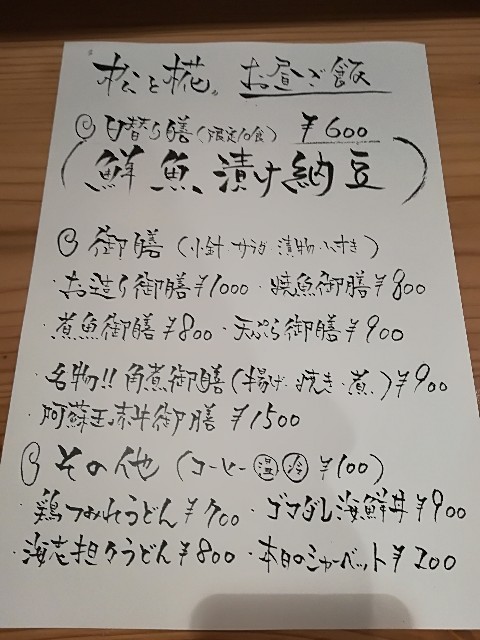 松と椛。 お昼ご飯
日替り膳（限定10食） ¥600
（鮮魚漬け納豆）
御膳（小鉢・サラダ・漬物・いすき）
・お造り御膳¥1000 ・焼魚御膳¥800
・煮魚御膳¥800 ・天ぷら御膳¥900
・名物!!角煮御膳（揚げ・焼き・煮）¥900
・阿蘇王赤牛御膳 ¥1500
その他（コーヒー温冷 ¥100）
・鶏つみれうどん¥700 ・ゴマダレ海鮮丼¥900
・海老担々うどん¥800 ・本日のシャーベット¥200